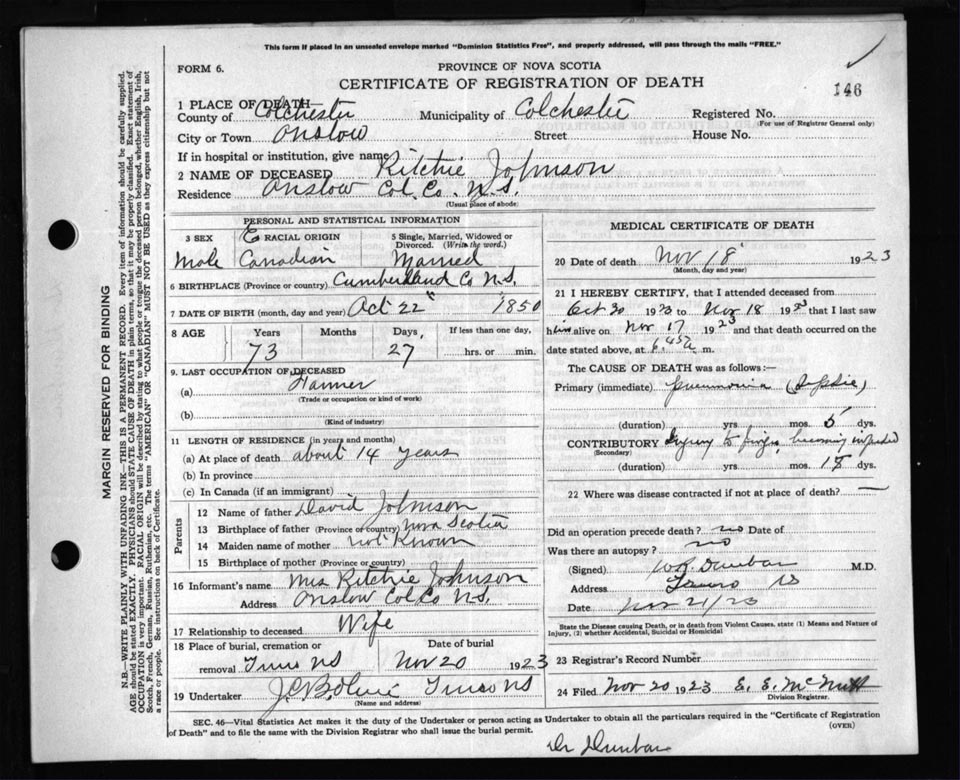 This form if placed in an unsealed envelope marked "Dominion Statistics Free", and properly addressed, will pass through the mails "FREE."
FORM 6.
PROVINCE OF NOVA SCOTIA
CERTIFICATE OF REGISTRATION OF DEATH
146
1 PLACE OF DEATH—
County of Colchester Municipality of Colchester Registered No.
(For use of Registrar General only)
City or Town Onslow Street House No.
If in hospital or institution, give name
2 NAME OF DECEASED Ritchie Johnson
Residence Onslow Col. Co. N.S.
(Usual place of abode)
PERSONAL AND STATISTICAL INFORMATION
3 SEX E RACIAL ORIGIN 5 Single, Married, Widowed or
Divorced. (Write the word.)
Male Canadian Married
6 BIRTHPLACE (Province or country) Cumberland Co N.S.
7 DATE OF BIRTH (month, day and year) Oct 22" 1850
8 AGE Years Months Days, If less than one day,
73 27 hrs. or min.
9. LAST OCCUPATION OF DECEASED
(a) Farmer
(Trade or occupation or kind of work)
(b)
(Kind of industry)
11 LENGTH OF RESIDENCE (in years and months)
(a) At place of death about 14 years
(b) In province
(c) In Canada (if an immigrant)
Parents
12 Name of father David Johnson
13 Birthplace of father (Province or country) Nova Scotia
14 Maiden name of mother not Known
15 Birthplace of mother (Province or country)
16 Informant's name Mrs Ritchie Johnson
Address Onslow Col Co N.S.
17 Relationship to deceased Wife
18 Place of burial, cremation or Date of burial
removal Truro NS Nov 20 1923
19 Undertaker Truro NS
(Name and address)
MEDICAL CERTIFICATE OF DEATH
20 Date of death Nov 18 1923
(Month, day and year)
21 I HEREBY CERTIFY, that I attended deceased from
Oct 30 1923 to Nov 18 192 that I last saw
h alive on Nov 17 1923 and that death occurred on the
date stated above, at 6.45 a m.
The CAUSE OF DEATH was as follows:—
Primary (immediate) pneumonia (Septic)
(duration) yrs. mos. 5 dys.
CONTRIBUTORY Injury to finger, becoming infected
(Secondary)
(duration) yrs. mos. 18 dys.
22 Where was disease contracted if not at place of death? —
Did an operation precede death? no Date of
Was there an autopsy? no
(Signed) Dunbar M.D.
Address Truro NS
Date Nov 21/23
State the Disease causing Death, or in death from Violent Causes, state (1) Means and Nature of
Injury, (2) whether Accidental, Suicidal or Homicidal
23 Registrar's Record Number
24 Filed Nov 20 1923 E. E. McNutt
Division Registrar.
SEC. 46—Vital Statistics Act makes it the duty of the Undertaker or person acting as Undertaker to obtain all the particulars required in the "Certificate of Registration
of Death" and to file the same with the Division Registrar who shall issue the burial permit.
(OVER)
Dr Dunbar
MARGIN RESERVED FOR BINDING
N.B.—WRITE PLAINLY WITH UNFADING INK—THIS IS A PERMANENT RECORD. Every item of information should be carefully supplied.
AGE should be stated EXACTLY. PHYSICIANS should STATE CAUSE OF DEATH in plain terms, so that it may be properly classified. Exact statement of
OCCUPATION is very important. RACIAL ORIGIN will be described by stating to what people or tongue the deceased person belonged, whether English, Irish,
Scotch, French, German, Russian, Ruthenian, etc. The terms "AMERICAN" OR "CANADIAN" MUST NOT BE USED as they express citizenship but not
a race or people. See instructions on back of Certificate.